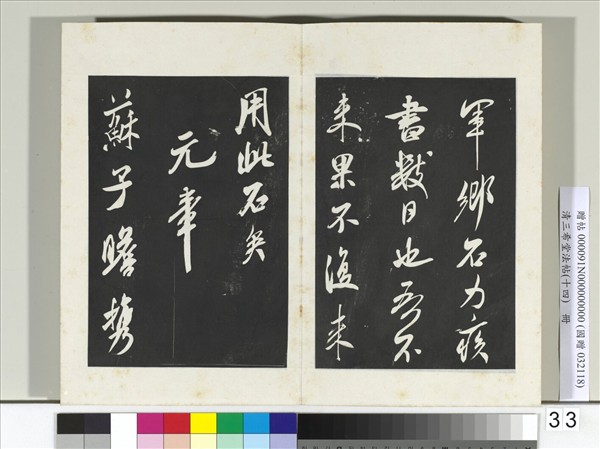 軍鄉石力疾
書數日也吾不
來果不復來
用此石矣
元章
蘇子瞻攜
贈帖 000091N000000000 (國贈 032118)
清三希堂法帖(十四) 冊
33